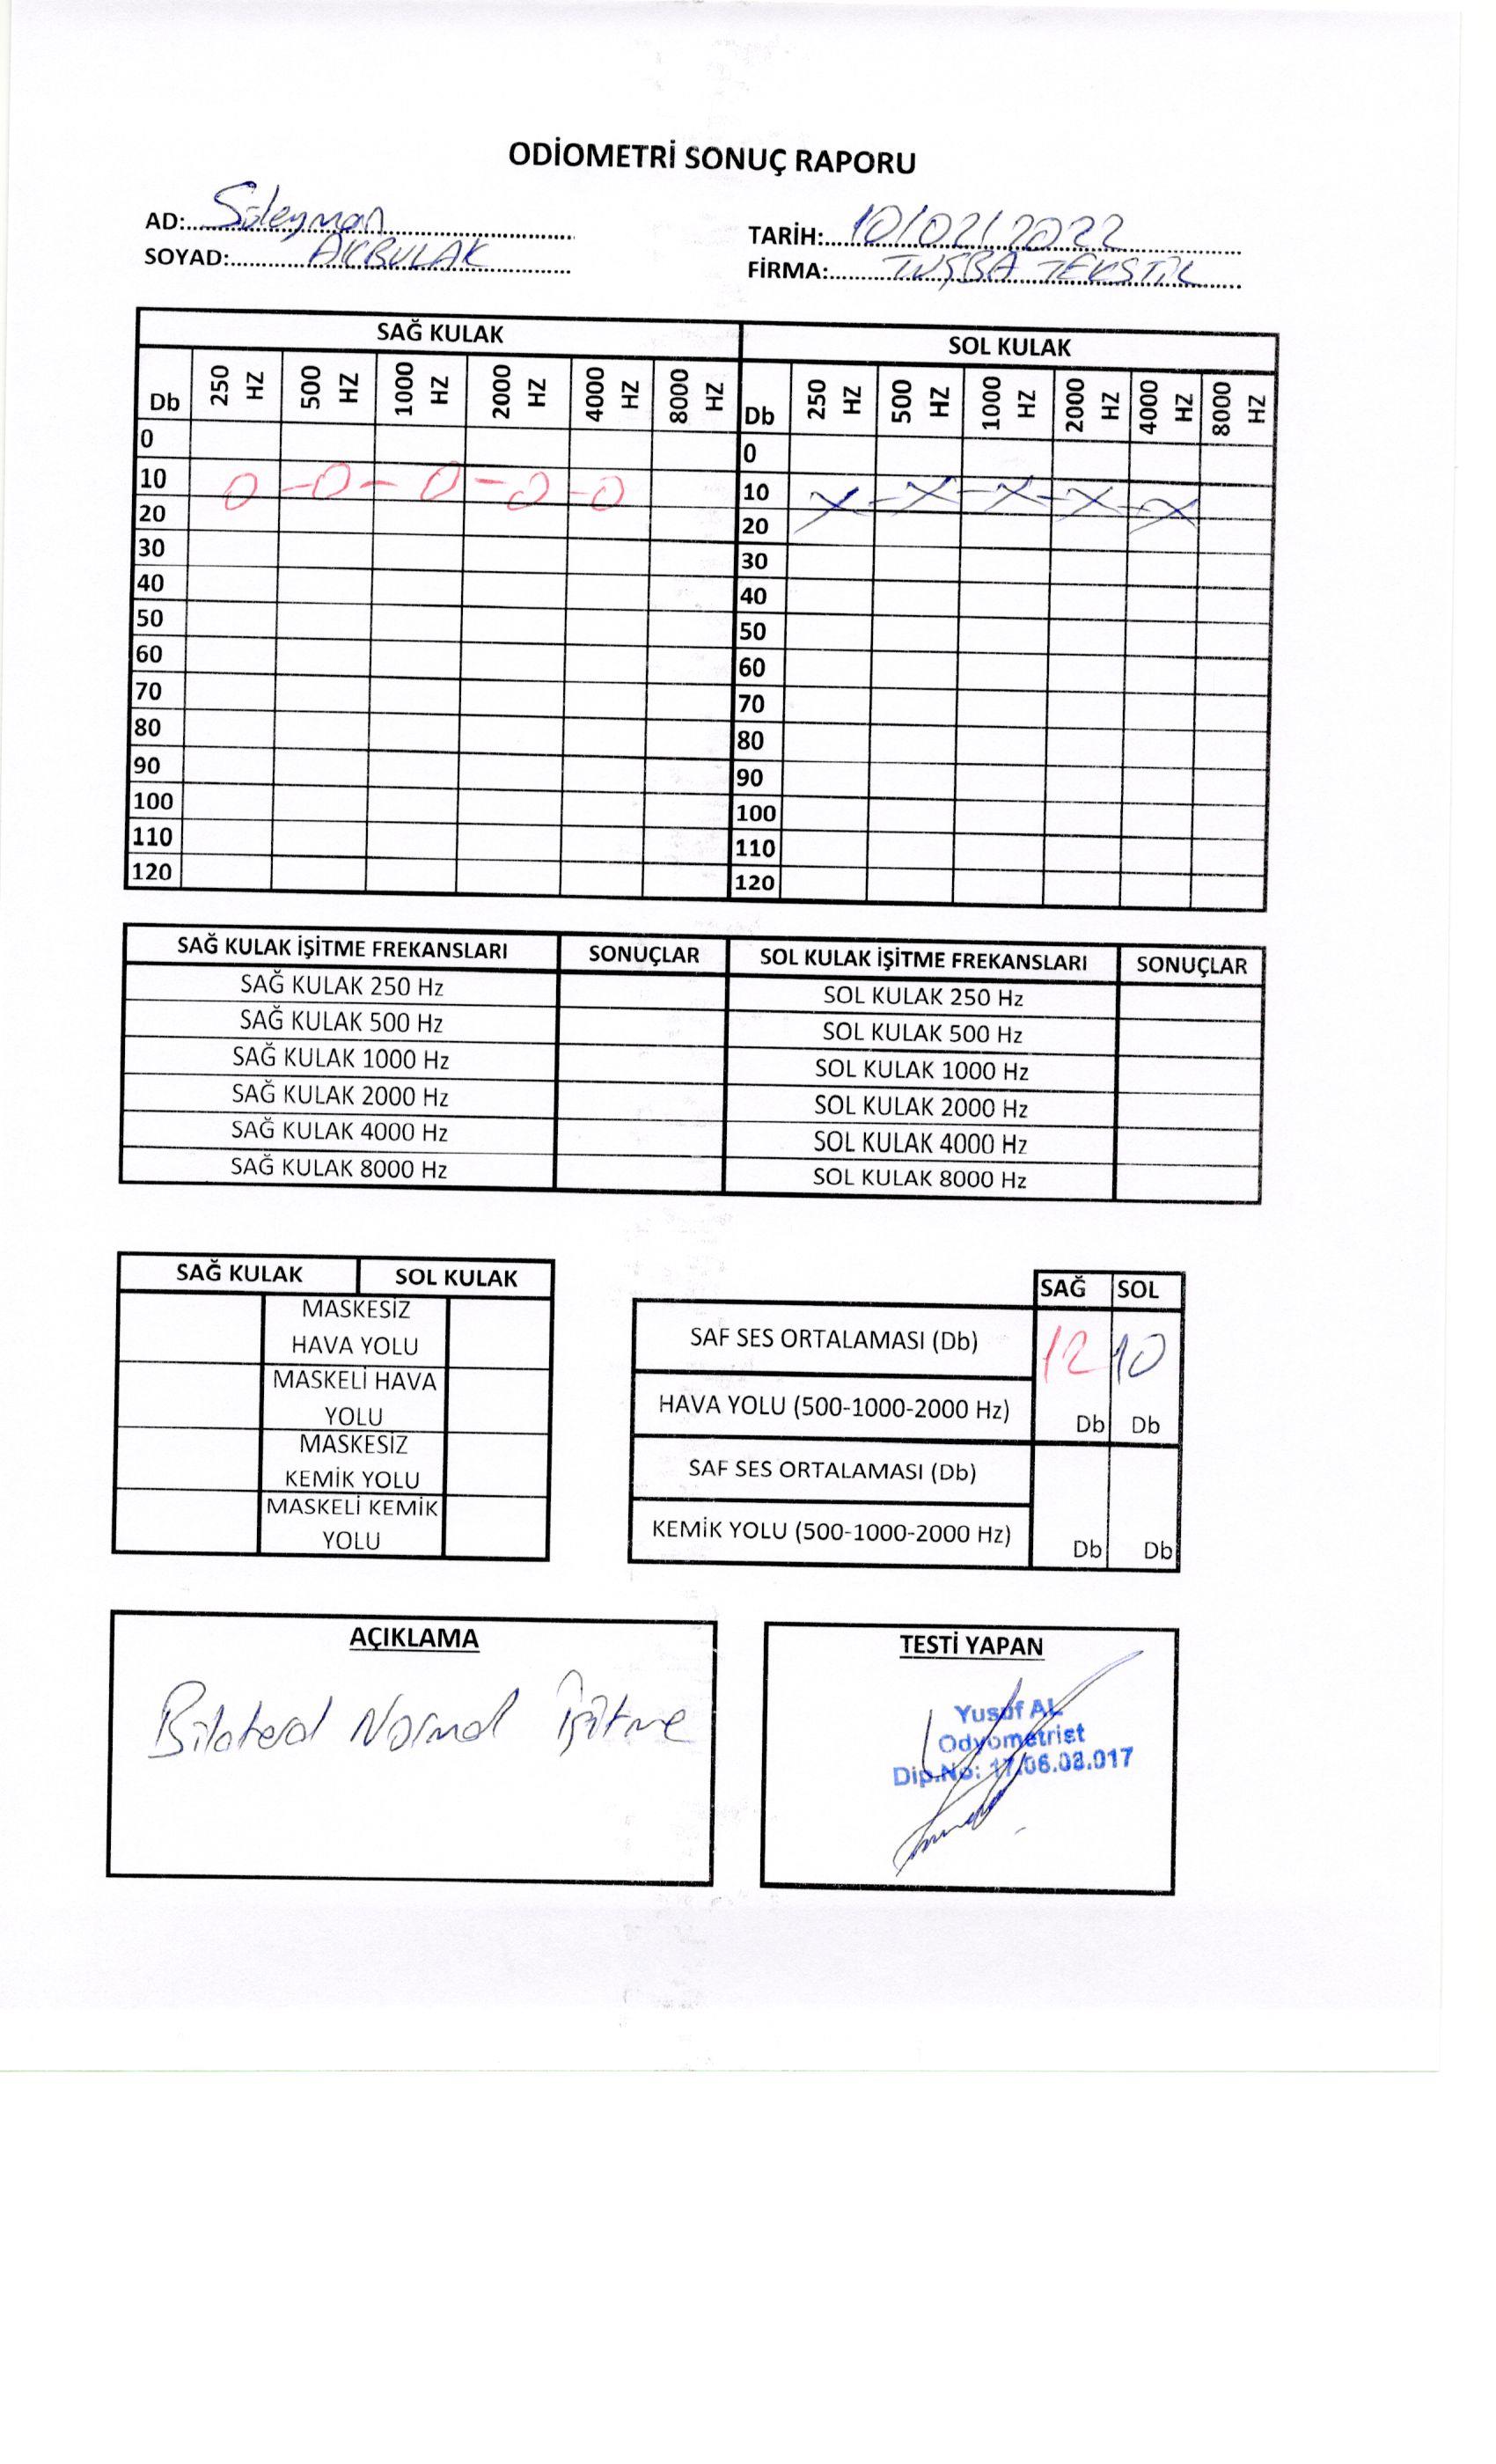 ODİOMETRİ SONUÇ RAPORU
AD: Süleyman
SOYAD: AKBULAK
TARİH: 10/02/2022
FİRMA: TUŞBA TEKSTİL
SAĞ KULAK SOL KULAK
Db 250 HZ 500 HZ 1000 HZ 2000 HZ 4000 HZ 8000 HZ Db 250 HZ 500 HZ 1000 HZ 2000 HZ 4000 HZ 8000 HZ
0 0
10 O - O - O - O - O 10 X - X - X - X - X
20 20
30 30
40 40
50 50
60 60
70 70
80 80
90 90
100 100
110 110
120 120
SAĞ KULAK İŞİTME FREKANSLARI SONUÇLAR SOL KULAK İŞİTME FREKANSLARI SONUÇLAR
SAĞ KULAK 250 Hz SOL KULAK 250 Hz
SAĞ KULAK 500 Hz SOL KULAK 500 Hz
SAĞ KULAK 1000 Hz SOL KULAK 1000 Hz
SAĞ KULAK 2000 Hz SOL KULAK 2000 Hz
SAĞ KULAK 4000 Hz SOL KULAK 4000 Hz
SAĞ KULAK 8000 Hz SOL KULAK 8000 Hz
SAĞ KULAK SOL KULAK
MASKESİZ
HAVA YOLU
MASKELİ HAVA
YOLU
MASKESİZ
KEMİK YOLU
MASKELİ KEMİK
YOLU
SAĞ SOL
SAF SES ORTALAMASI (Db) 12 10
HAVA YOLU (500-1000-2000 Hz) Db Db
SAF SES ORTALAMASI (Db)
KEMİK YOLU (500-1000-2000 Hz) Db Db
AÇIKLAMA
Bilateral Normal İşitme
TESTİ YAPAN
Yusuf AL
Odyometrist
Dip.No: 17.06.03.017